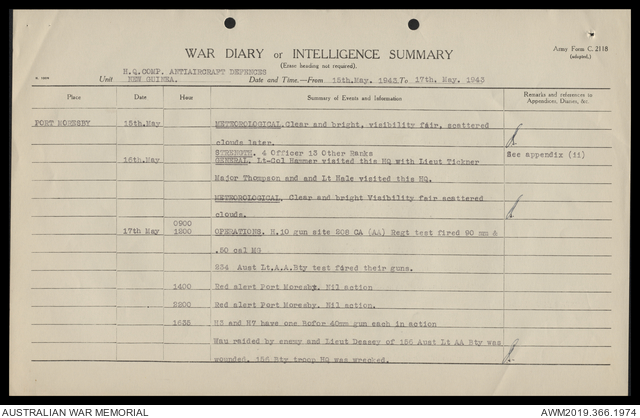 Army Form C. 2118
(adapted.)
WAR DIARY or INTELLIGENCE SUMMARY
(Erase heading not required).
H.Q.COMP. ANTIAIRCRAFT DEFENCES
Unit NEW GUINEA. Date and Time.—From 15th.May. 1943.To 17th. May. 1943
Place Date Hour Summary of Events and Information Remarks and references to Appendices, Diaries, &c.
PORT MORESBY 15th.May METEOROLOGICAL.Clear and bright, visibility fair, scattered
clouds later.
STRENGTH. 4 Officer 13 Other Ranks See appendix (ii)
16th.May GENERAL. Lt-Col Hammer visited this HQ with Lieut Tickner
Major Thompson and and Lt Hale visited this HQ.
METEOROLOGICAL. Clear and bright Visibility fair scattered
clouds.
0900
17th May 1200 OPERATIONS. H.10 gun site 208 CA (AA) Regt test fired 90 mm &
.50 cal MG
234 Aust Lt.A.A.Bty test fired their guns.
1400 Red alert Port Moresby. Nil action
2200 Red alert Port Moresby. Nil action.
1635 H3 and H7 have one Bofor 40mm gun each in action
Wau raided by enemy and Lieut Deasey of 156 Aust Lt AA Bty was
wounded. 156 Bty troop HQ was wrecked.
AUSTRALIAN WAR MEMORIAL
AWM2019.366.1974